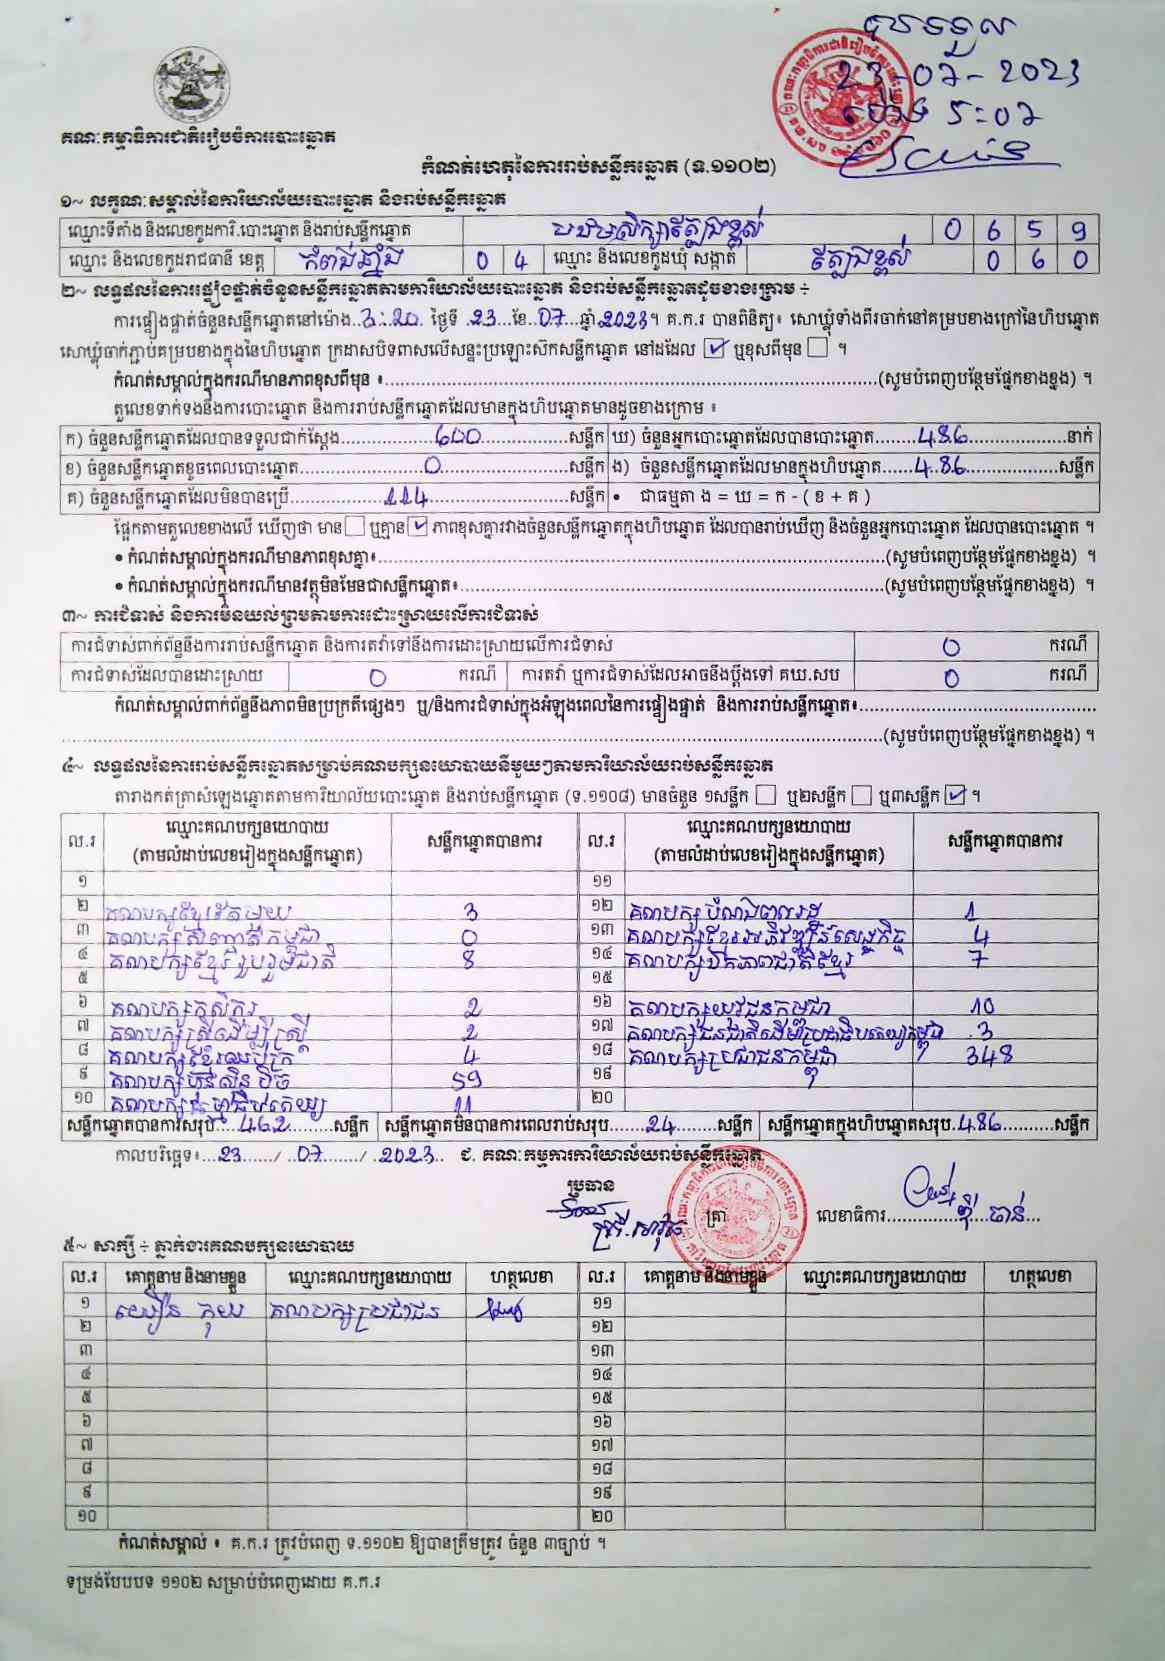 បានទទួល
23-07-2023
ម៉ោង 5:07
គណៈកម្មាធិការជាតិរៀបចំការបោះឆ្នោត
កំណត់ហេតុនៃការរាប់សន្លឹកឆ្នោត (ទ.១១០២)
១~ លក្ខណៈសម្គាល់នៃការិយាល័យបោះឆ្នោត និងរាប់សន្លឹកឆ្នោត
ឈ្មោះទីតាំង និងលេខកូដការិ.បោះឆ្នោត និងរាប់សន្លឹកឆ្នោត បឋមសិក្សាត្បែងខ្ពស់ 0 6 5 9
ឈ្មោះ និងលេខកូដរាជធានី ខេត្ត កំពង់ឆ្នាំង 0 4 ឈ្មោះ និងលេខកូដឃុំ សង្កាត់ ត្បែងខ្ពស់ 0 6 0
២~ លទ្ធផលនៃការផ្ទៀងផ្ទាត់ចំនួនសន្លឹកឆ្នោតតាមការិយាល័យបោះឆ្នោត និងរាប់សន្លឹកឆ្នោតដូចខាងក្រោម ÷
ការផ្ទៀងផ្ទាត់ចំនួនសន្លឹកឆ្នោតនៅម៉ោង..3:20. ថ្ងៃទី .23...ខែ..07...ឆ្នាំ 2023។ គ.ក.រ បានពិនិត្យ៖ សោឃ្លុំទាំងពីរចាក់នៅគម្របខាងក្រៅនៃហិបឆ្នោត
សោឃ្លុំចាក់ភ្ជាប់គម្របខាងក្នុងនៃហិបឆ្នោត ក្រដាសបិទពាសលើសន្ទះប្រឡោះស៊កសន្លឹកឆ្នោត នៅដដែល ☑ ឬខុសពីមុន ☐ ។
កំណត់សម្គាល់ក្នុងករណីមានភាពខុសពីមុន ៖..........(សូមបំពេញបន្ថែមផ្នែកខាងខ្នង) ។
តួលេខទាក់ទងនឹងការបោះឆ្នោត និងការរាប់សន្លឹកឆ្នោតដែលមានក្នុងហិបឆ្នោតមានដូចខាងក្រោម ៖
ក) ចំនួនសន្លឹកឆ្នោតដែលបានទទួលជាក់ស្តែង..........600..........សន្លឹក ឃ) ចំនួនអ្នកបោះឆ្នោតដែលបានបោះឆ្នោត........486..........នាក់
ខ) ចំនួនសន្លឹកឆ្នោតខូចពេលបោះឆ្នោត..........0..........សន្លឹក ង) ចំនួនសន្លឹកឆ្នោតដែលមានក្នុងហិបឆ្នោត......486..........សន្លឹក
គ) ចំនួនសន្លឹកឆ្នោតដែលមិនបានប្រើ..........114..........សន្លឹក • ជាធម្មតា ង = ឃ = ក - ( ខ + គ )
ផ្អែកតាមតួលេខខាងលើ ឃើញថា មាន ☐ ឬគ្មាន ☑ ភាពខុសគ្នារវាងចំនួនសន្លឹកឆ្នោតក្នុងហិបឆ្នោត ដែលបានរាប់ឃើញ និងចំនួនអ្នកបោះឆ្នោត ដែលបានបោះឆ្នោត ។
• កំណត់សម្គាល់ក្នុងករណីមានភាពខុសគ្នា៖..........(សូមបំពេញបន្ថែមផ្នែកខាងខ្នង) ។
• កំណត់សម្គាល់ក្នុងករណីមានវត្ថុមិនមែនជាសន្លឹកឆ្នោត៖..........(សូមបំពេញបន្ថែមផ្នែកខាងខ្នង) ។
៣~ ការជំទាស់ និងការមិនយល់ព្រមតាមការដោះស្រាយលើការជំទាស់
ការជំទាស់ពាក់ព័ន្ធនឹងការរាប់សន្លឹកឆ្នោត និងការតវ៉ាទៅនឹងការដោះស្រាយលើការជំទាស់ 0 ករណី
ការជំទាស់ដែលបានដោះស្រាយ 0 ករណី ការតវ៉ា ឬការជំទាស់ដែលអាចនឹងប្តឹងទៅ គឃ.សប 0 ករណី
កំណត់សម្គាល់ពាក់ព័ន្ធនឹងភាពមិនប្រក្រតីផ្សេងៗ ឬ/និងការជំទាស់ក្នុងអំឡុងពេលនៃការផ្ទៀងផ្ទាត់ និងការរាប់សន្លឹកឆ្នោត៖..........
..........(សូមបំពេញបន្ថែមផ្នែកខាងខ្នង) ។
៤~ លទ្ធផលនៃការរាប់សន្លឹកឆ្នោតសម្រាប់គណបក្សនយោបាយនីមួយៗតាមការិយាល័យរាប់សន្លឹកឆ្នោត
តារាងកត់ត្រាសំឡេងឆ្នោតតាមការិយាល័យបោះឆ្នោត និងរាប់សន្លឹកឆ្នោត (ទ.១១០៨) មានចំនួន ១សន្លឹក ☐ ឬ២សន្លឹក ☐ ឬ៣សន្លឹក ☑ ។
ល.រ ឈ្មោះគណបក្សនយោបាយ (តាមលំដាប់លេខរៀងក្នុងសន្លឹកឆ្នោត) សន្លឹកឆ្នោតបានការ ល.រ ឈ្មោះគណបក្សនយោបាយ (តាមលំដាប់លេខរៀងក្នុងសន្លឹកឆ្នោត) សន្លឹកឆ្នោតបានការ
១ ១១
២ គណបក្សខ្មែរតែមួយ 3 ១២ គណបក្សបំណងពលរដ្ឋ 1
៣ គណបក្សសញ្ជាតិកម្ពុជា 0 ១៣ គណបក្សខ្មែរអភិវឌ្ឍន៍សេដ្ឋកិច្ច 4
៤ គណបក្សខ្មែររួបរួមជាតិ 8 ១៤ គណបក្សឯកភាពជាតិខ្មែរ 7
៥ ១៥
៦ គណបក្សកសិករ 2 ១៦ គណបក្សយុវជនកម្ពុជា 10
៧ គណបក្សស្ត្រីដើម្បីស្ត្រី 2 ១៧ គណបក្សជនជាតិដើមប្រជាធិបតេយ្យកម្ពុជា 3
៨ គណបក្សខ្មែរឈប់ក្រ 4 ១៨ គណបក្សប្រជាជនកម្ពុជា 348
៩ គណបក្សហ៊្វុនស៊ិនប៉ិច 59 ១៩
១០ គណបក្សធម្មាធិបតេយ្យ 11 ២០
សន្លឹកឆ្នោតបានការសរុប...462..........សន្លឹក សន្លឹកឆ្នោតមិនបានការពេលរាប់សរុប.......24........សន្លឹក សន្លឹកឆ្នោតក្នុងហិបឆ្នោតសរុប.486..........សន្លឹក
កាលបរិច្ឆេទ៖...23....../ ..07......./ .2023.. ជ. គណៈកម្មការការិយាល័យរាប់សន្លឹកឆ្នោត
ប្រធាន
ត្រា លេខាធិការ..........
៥~ សាក្សី ÷ ភ្នាក់ងារគណបក្សនយោបាយ
ល.រ គោត្តនាម និងនាមខ្លួន ឈ្មោះគណបក្សនយោបាយ ហត្ថលេខា ល.រ គោត្តនាម និងនាមខ្លួន ឈ្មោះគណបក្សនយោបាយ ហត្ថលេខា
១ គណបក្សប្រជាជន ១១
២ ១២
៣ ១៣
៤ ១៤
៥ ១៥
៦ ១៦
៧ ១៧
៨ ១៨
៩ ១៩
១០ ២០
កំណត់សម្គាល់ ៖ គ.ក.រ ត្រូវបំពេញ ទ.១១០២ ឱ្យបានត្រឹមត្រូវ ចំនួន ៣ច្បាប់ ។
ទម្រង់បែបបទ ១១០២ សម្រាប់បំពេញដោយ គ.ក.រ